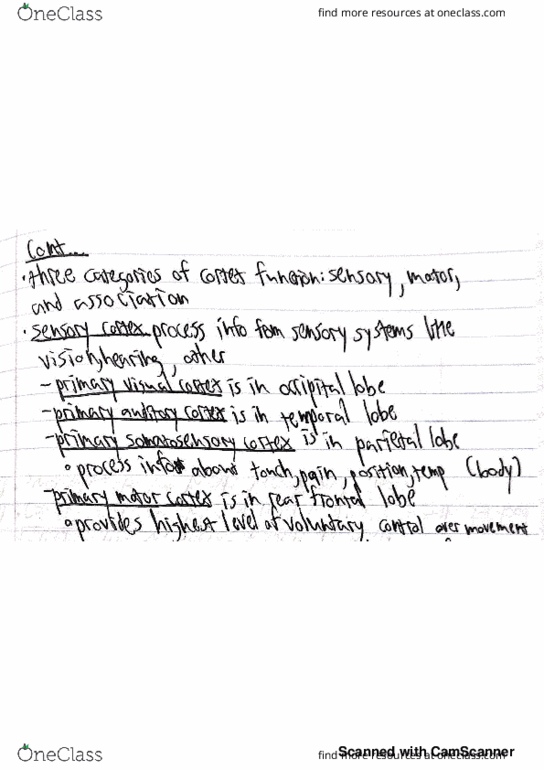 OneClass
find more resources at oneclass.com
Cont...
• three categories of cortex function: sensory, motor,
and association
• sensory cortex process info from sensory systems like
vision, hearing, other
- primary visual cortex is in occipital lobe
- primary auditory cortex is in temporal lobe
- primary somatosensory cortex is in parietal lobe
° process info about touch, pain, position, temp (body)
- primary motor cortex is in rear frontal lobe
° provides highest level of voluntary control over movement
OneClass
find more resources at oneclass.com
Scanned with CamScanner